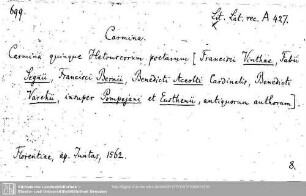 699.
Lit. Lat. rec. A 427.
Carmina.
Carmina quinque Hetruscorum poetarum [Francisci Vinthae, Fabii
Segnii, Francisci Bernii, Benedicti Accolti Cardinalis, Benedicti
Varchii, insuper Pompejani et Eusthenii, antiquorum authorum]
Florentiae, ap. Juntas, 1562.
8.